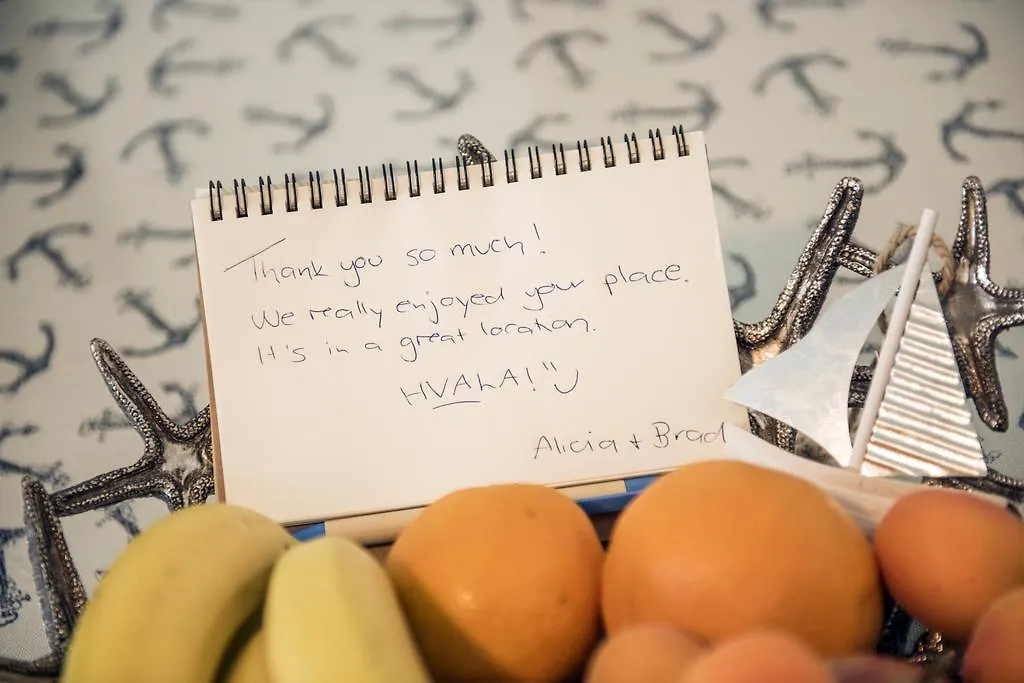 Thank you so much!
We really enjoyed your place.
It's in a great location.
HVALA! :)
Alicia + Brad